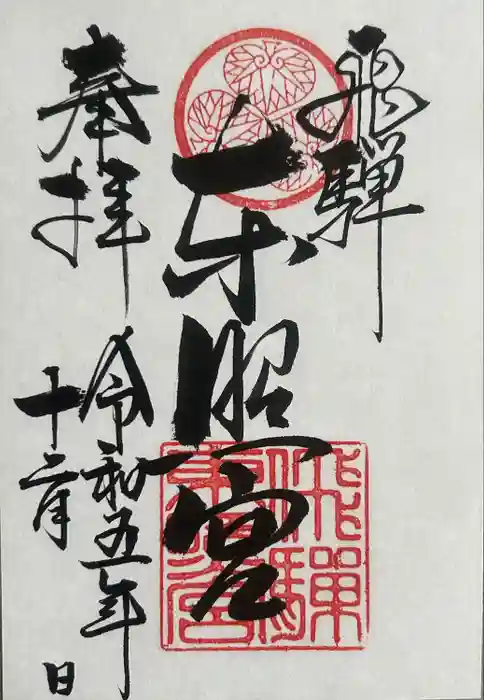 飛騨
東照宮
奉拝
令和五年
十二月 日
飛騨
東照宮